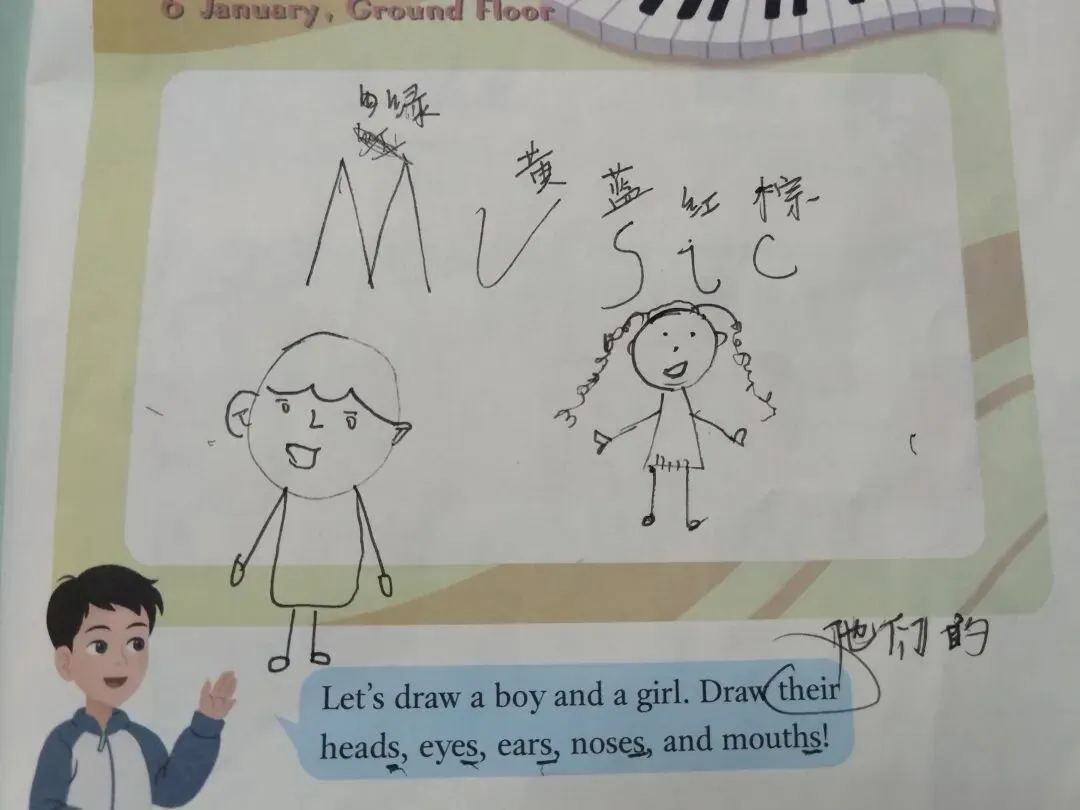 6 January, Ground Floor
白绿
黄 蓝 红 棕
MUSiC
他们的
Let's draw a boy and a girl. Draw their
heads, eyes, ears, noses, and mouths!